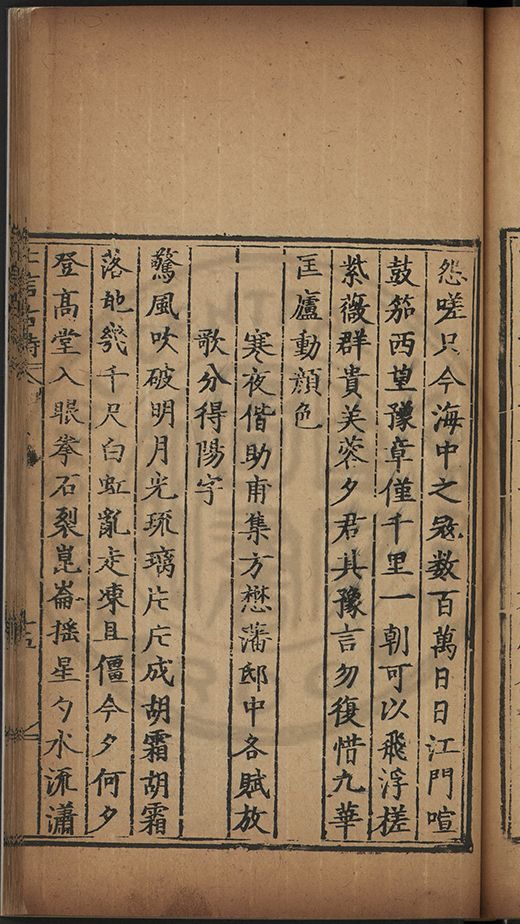 怨嗟只今海中之寇数百萬日日江門喧
鼓笳西望豫章僅千里一朝可以飛浮槎
紫薇群貴芙蓉夕君其豫言勿復惜九華
匡廬動顔色
寒夜偕助甫集方懋藩邸中各賦放
歌分得陽字
驚風吹破明月光琉璃片片成胡霜胡霜
落地幾千尺白虹亂走凍且僵今夕何夕
登高堂入眼拳石裂崑崙摇星勺水流瀟